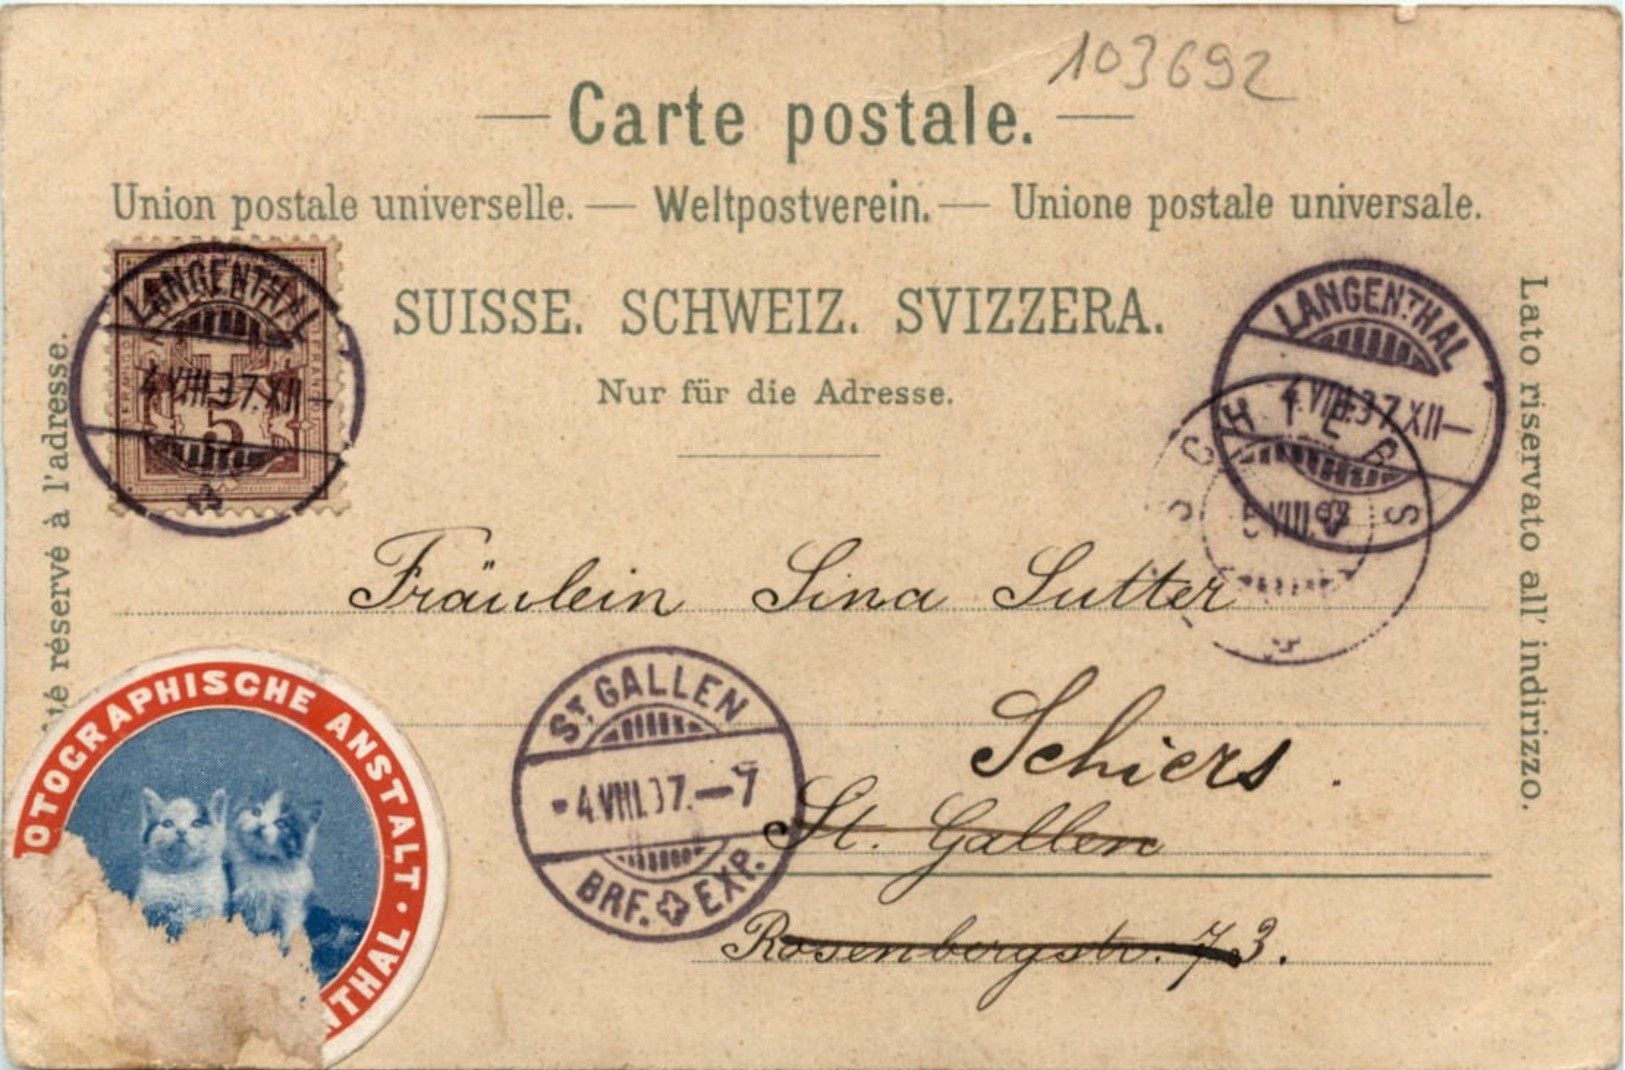 103692
Carte postale.
Union postale universelle. — Weltpostverein. — Unione postale universale.
SUISSE. SCHWEIZ. SVIZZERA.
Nur für die Adresse.
té réservé à l'adresse.
Lato riservato all' indirizzo.
LANGENTHAL
4.VIII.97.XII—
5
LANGENTHAL
4.VIII.97.XII—
SCHIERS
5.VIII.97
Fräulein Sina Sutter
Schiers.
St. Gallen
Rosenbergstr. 73.
ST. GALLEN
-4.VIII.97.—7
BRF. EXP.
OTOGRAPHISCHE ANSTALT · NTHAL